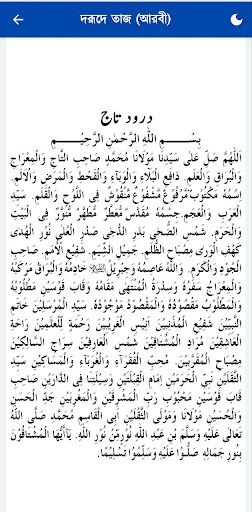 দরূদে তাজ (আরবী)
درود تاج
بِسْــــمِ اللّٰهِ الرَّحْمٰنِ الرَّحِيْـــمِ
اَللّٰهُمَّ صَلِّ عَلٰى سَيِّدِنَا مَوْلَانَا مُحَمَّدٍ صَاحِبِ التَّاجِ وَالْمِعْرَاجِ
وَالْبُرَاقِ وَالْعَلَمِ. دَافِعِ الْبَلَاءِ وَالْوَبَآءِ وَالْقَحْطِ وَالْمَرَضِ وَالْاَلَمِ.
اِسْمُهٗ مَكْتُوْبٌ مَّرْفُوْعٌ مَّشْفُوْعٌ مَّنْقُوْشٌ فِى اللَّوْحِ وَالْقَلَمِ. سَيِّدِ
الْعَرَبِ وَالْعَجَمِ. جِسْمُهٗ مُقَدَّسٌ مُّعَطَّرٌ مُّطَهَّرٌ مُّنَوَّرٌ فِى الْبَيْتِ
وَالْحَرَمِ. شَمْسِ الضُّحٰى بَدْرِ الدُّجٰى صَدْرِ الْعُلٰى نُوْرِ الْهُدٰى
كَهْفِ الْوَرٰى مِصْبَاحِ الظُّلَمِ. جَمِيْلِ الشِّيَمِ. شَفِيْعِ الْاُمَمِ. صَاحِبِ
الْجُوْدِ وَالْكَرَمِ. وَاللّٰهُ عَاصِمُهٗ وَجِبْرِيْلُ خَادِمُهٗ وَالْبُرَاقُ مَرْكَبُهٗ
وَالْمِعْرَاجُ سَفَرُهٗ وَسِدْرَةُ الْمُنْتَهٰى مَقَامُهٗ وَقَابَ قَوْسَيْنِ مَطْلُوْبُهٗ
وَالْمَطْلُوْبُ مَقْصُوْدُهٗ وَالْمَقْصُوْدُ مَوْجُوْدُهٗ. سَيِّدِ الْمُرْسَلِيْنَ خَاتَمِ
النَّبِيِّيْنَ شَفِيْعِ الْمُذْنِبِيْنَ اَنِيْسِ الْغَرِيْبِيْنَ رَحْمَةٍ لِّلْعٰلَمِيْنَ رَاحَةِ
الْعَاشِقِيْنَ مُرَادِ الْمُشْتَاقِيْنَ شَمْسِ الْعَارِفِيْنَ سِرَاجِ السَّالِكِيْنَ
مِصْبَاحِ الْمُقَرَّبِيْنَ. مُحِبِّ الْفُقَرَآءِ وَالْغُرَبَآءِ وَالْمَسَاكِيْنَ سَيِّدِ
الثَّقَلَيْنِ نَبِيِّ الْحَرَمَيْنِ اِمَامِ الْقِبْلَتَيْنِ وَسِيْلَتِنَا فِى الدَّارَيْنِ صَاحِبِ
قَابَ قَوْسَيْنِ مَحْبُوْبِ رَبِّ الْمَشْرِقَيْنِ وَالْمَغْرِبَيْنِ جَدِّ الْحَسَنِ
وَالْحُسَيْنِ مَوْلَانَا وَمَوْلَى الثَّقَلَيْنِ اَبِى الْقَاسِمِ مُحَمَّدٍ صَلَّى اللّٰهُ
تَعَالٰى عَلَيْهِ وَسَلَّمَ بْنِ عَبْدِ اللّٰهِ نُوْرٍ مِّنْ نُوْرِ اللّٰهِ. يٰٓاَيُّهَا الْمُشْتَاقُوْنَ
بِنُوْرِ جَمَالِهٖ صَلُّوْا عَلَيْهِ وَسَلِّمُوْا تَسْلِيْمًا.